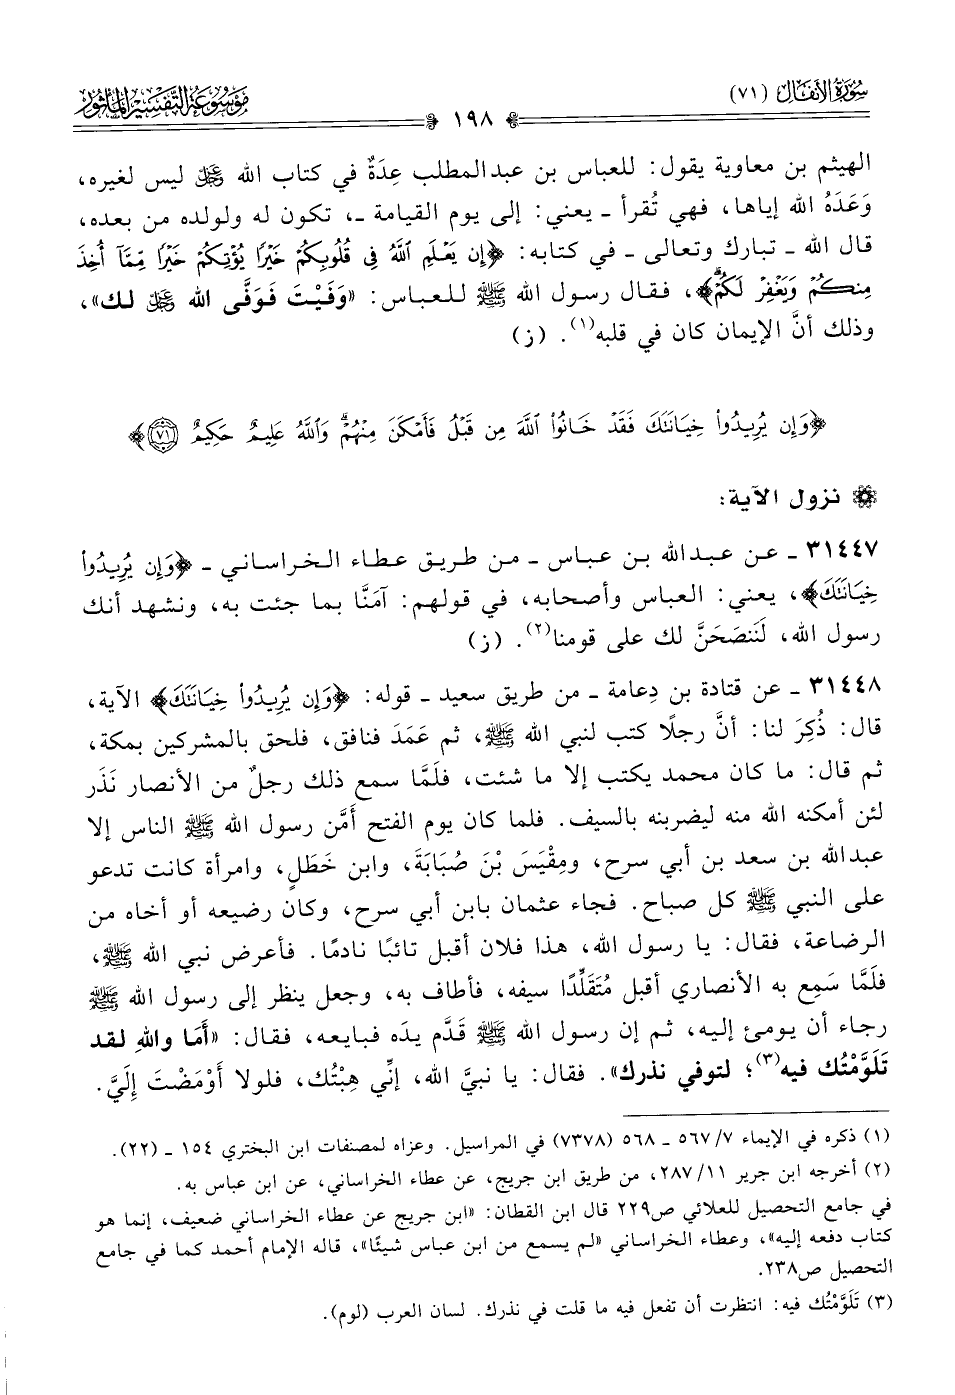 سُورَةُ الأَنفَالِ (٧١)
مَوْسُوعَة التَّفْسِير المَأْثُور
١٩٨
الهيثم بن معاوية يقول: للعباس بن عبدالمطلب عِدَةٌ في كتاب الله ﷻ ليس لغيره،
وَعَدَهُ الله إياها، فهي تُقرأ ـ يعني: إلى يوم القيامة ـ، تكون له ولولده من بعده،
قال الله ـ تبارك وتعالى ـ في كتابه: ﴿إِن يَعْلَمِ ٱللَّهُ فِى قُلُوبِكُمْ خَيْرًا يُؤْتِكُمْ خَيْرًا مِّمَّآ أُخِذَ
مِنكُمْ وَيَغْفِرْ لَكُمْۗ﴾، فقال رسول الله ﷺ للعباس: «وَفَيْتَ فَوَفَّى الله ﷻ لك»،
وذلك أنَّ الإيمان كان في قلبه(١). (ز)
﴿وَإِن يُرِيدُوا۟ خِيَانَتَكَ فَقَدْ خَانُوا۟ ٱللَّهَ مِن قَبْلُ فَأَمْكَنَ مِنْهُمْۗ وَٱللَّهُ عَلِيمٌ حَكِيمٌ ٧١﴾
نزول الآية:
٣١٤٤٧ ـ عن عبدالله بن عباس ـ من طريق عطاء الخراساني ـ ﴿وَإِن يُرِيدُوا۟
خِيَانَتَكَ﴾، يعني: العباس وأصحابه، في قولهم: آمَنَّا بما جئت به، ونشهد أنك
رسول الله، لَنَنصَحَنَّ لك على قومنا(٢). (ز)
٣١٤٤٨ ـ عن قتادة بن دِعامة ـ من طريق سعيد ـ قوله: ﴿وَإِن يُرِيدُوا۟ خِيَانَتَكَ﴾ الآية،
قال: ذُكِرَ لنا: أنَّ رجلًا كتب لنبي الله ﷺ، ثم عَمَدَ فنافق، فلحق بالمشركين بمكة،
ثم قال: ما كان محمد يكتب إلا ما شئت، فلَمَّا سمع ذلك رجلٌ من الأنصار نَذَر
لئن أمكنه الله منه ليضربنه بالسيف. فلما كان يوم الفتح أَمَّن رسول الله ﷺ الناس إلا
عبدالله بن سعد بن أبي سرح، ومِقْيَسَ بْنَ صُبَابَةَ، وابن خَطَلٍ، وامرأة كانت تدعو
على النبي ﷺ كل صباح. فجاء عثمان بابن أبي سرح، وكان رضيعه أو أخاه من
الرضاعة، فقال: يا رسول الله، هذا فلان أقبل تائبًا نادمًا. فأعرض نبي الله ﷺ،
فلَمَّا سَمِع به الأنصاري أقبل مُتَقَلِّدًا سيفه، فأطاف به، وجعل ينظر إلى رسول الله ﷺ
رجاء أن يومئ إليه، ثم إن رسول الله ﷺ قَدَّم يدَه فبايعه، فقال: «أَمَا واللهِ لقد
تَلَوَّمْتُك فيه(٣)؛ لتوفي نذرك». فقال: يا نبيَّ الله، إنِّي هِبْتُك، فلولا أَوْمَضْتَ إِلَيَّ.
(١) ذكره في الإيماء ٥٦٧/٧ ـ ٥٦٨ (٧٣٧٨) في المراسيل. وعزاه لمصنفات ابن البختري ١٥٤ ـ (٢٢).
(٢) أخرجه ابن جرير ٢٨٧/١١، من طريق ابن جريج، عن عطاء الخراساني، عن ابن عباس به.
في جامع التحصيل للعلائي ص٢٢٩ قال ابن القطان: «ابن جريج عن عطاء الخراساني ضعيف، إنما هو
كتاب دفعه إليه»، وعطاء الخراساني «لم يسمع من ابن عباس شيئًا»، قاله الإمام أحمد كما في جامع
التحصيل ص٢٣٨.
(٣) تَلَوَّمْتُك فيه: انتظرت أن تفعل فيه ما قلت في نذرك. لسان العرب (لوم).